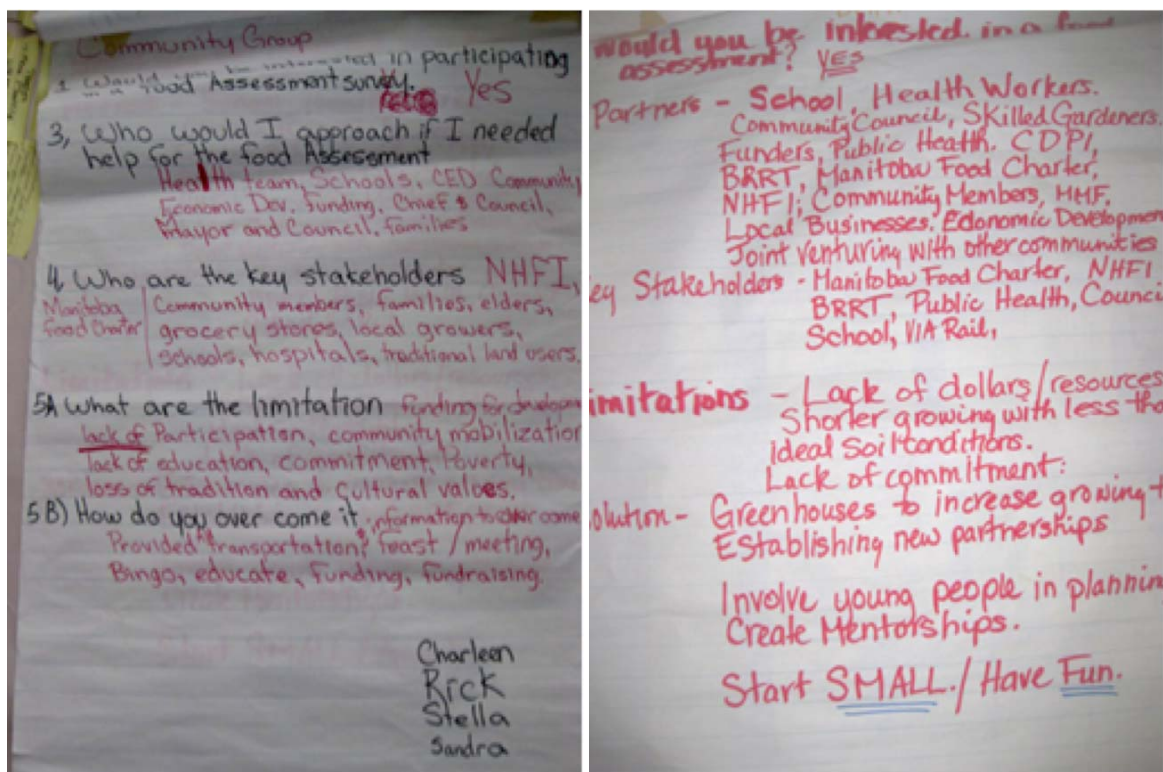 Community Group
1. Would in participating
food Assessment survey. Yes
3, Who would I approach if I needed
help for the food Assessment
Health team, Schools, CED Community
Economic Dev. funding, Chief & Council,
Mayor and Council, families
4. Who are the key stakeholders NHFI,
Manitoba
Food Charter
Community members, families, elders,
grocery stores, local growers,
schools, hospitals, traditional land users.
5A What are the limitation funding for
lack of Participation, community mobilization
lack of education, commitment, Poverty,
loss of tradition and Cultural values.
5B) How do you over come it, information to come
Provided transportation, feast / meeting,
Bingo, educate, funding, fundraising.
Charleen
Rick
Stella
Sandra
would you be interested in a food
assessment? YES
Partners - School, Health Workers.
Community Council, Skilled Gardeners.
Funders, Public Health. CDPI,
BRRT, Manitoba Food Charter,
NHFI, Community Members, MMF,
Local Businesses. Edonomic Developmen
Joint Venturing with other communities
ey Stakeholders - Manitoba Food Charter, NHFI
BRRT, Public Health, Counci
School, VIA Rail,
imitations - Lack of dollars/resources
Shorter growing with less tha
ideal Soil conditions.
Lack of commitment:
olution - Greenhouses to increase growing t
Establishing new partnerships
Involve young people in plannin
Create Mentorships.
Start SMALL. / Have Fun.